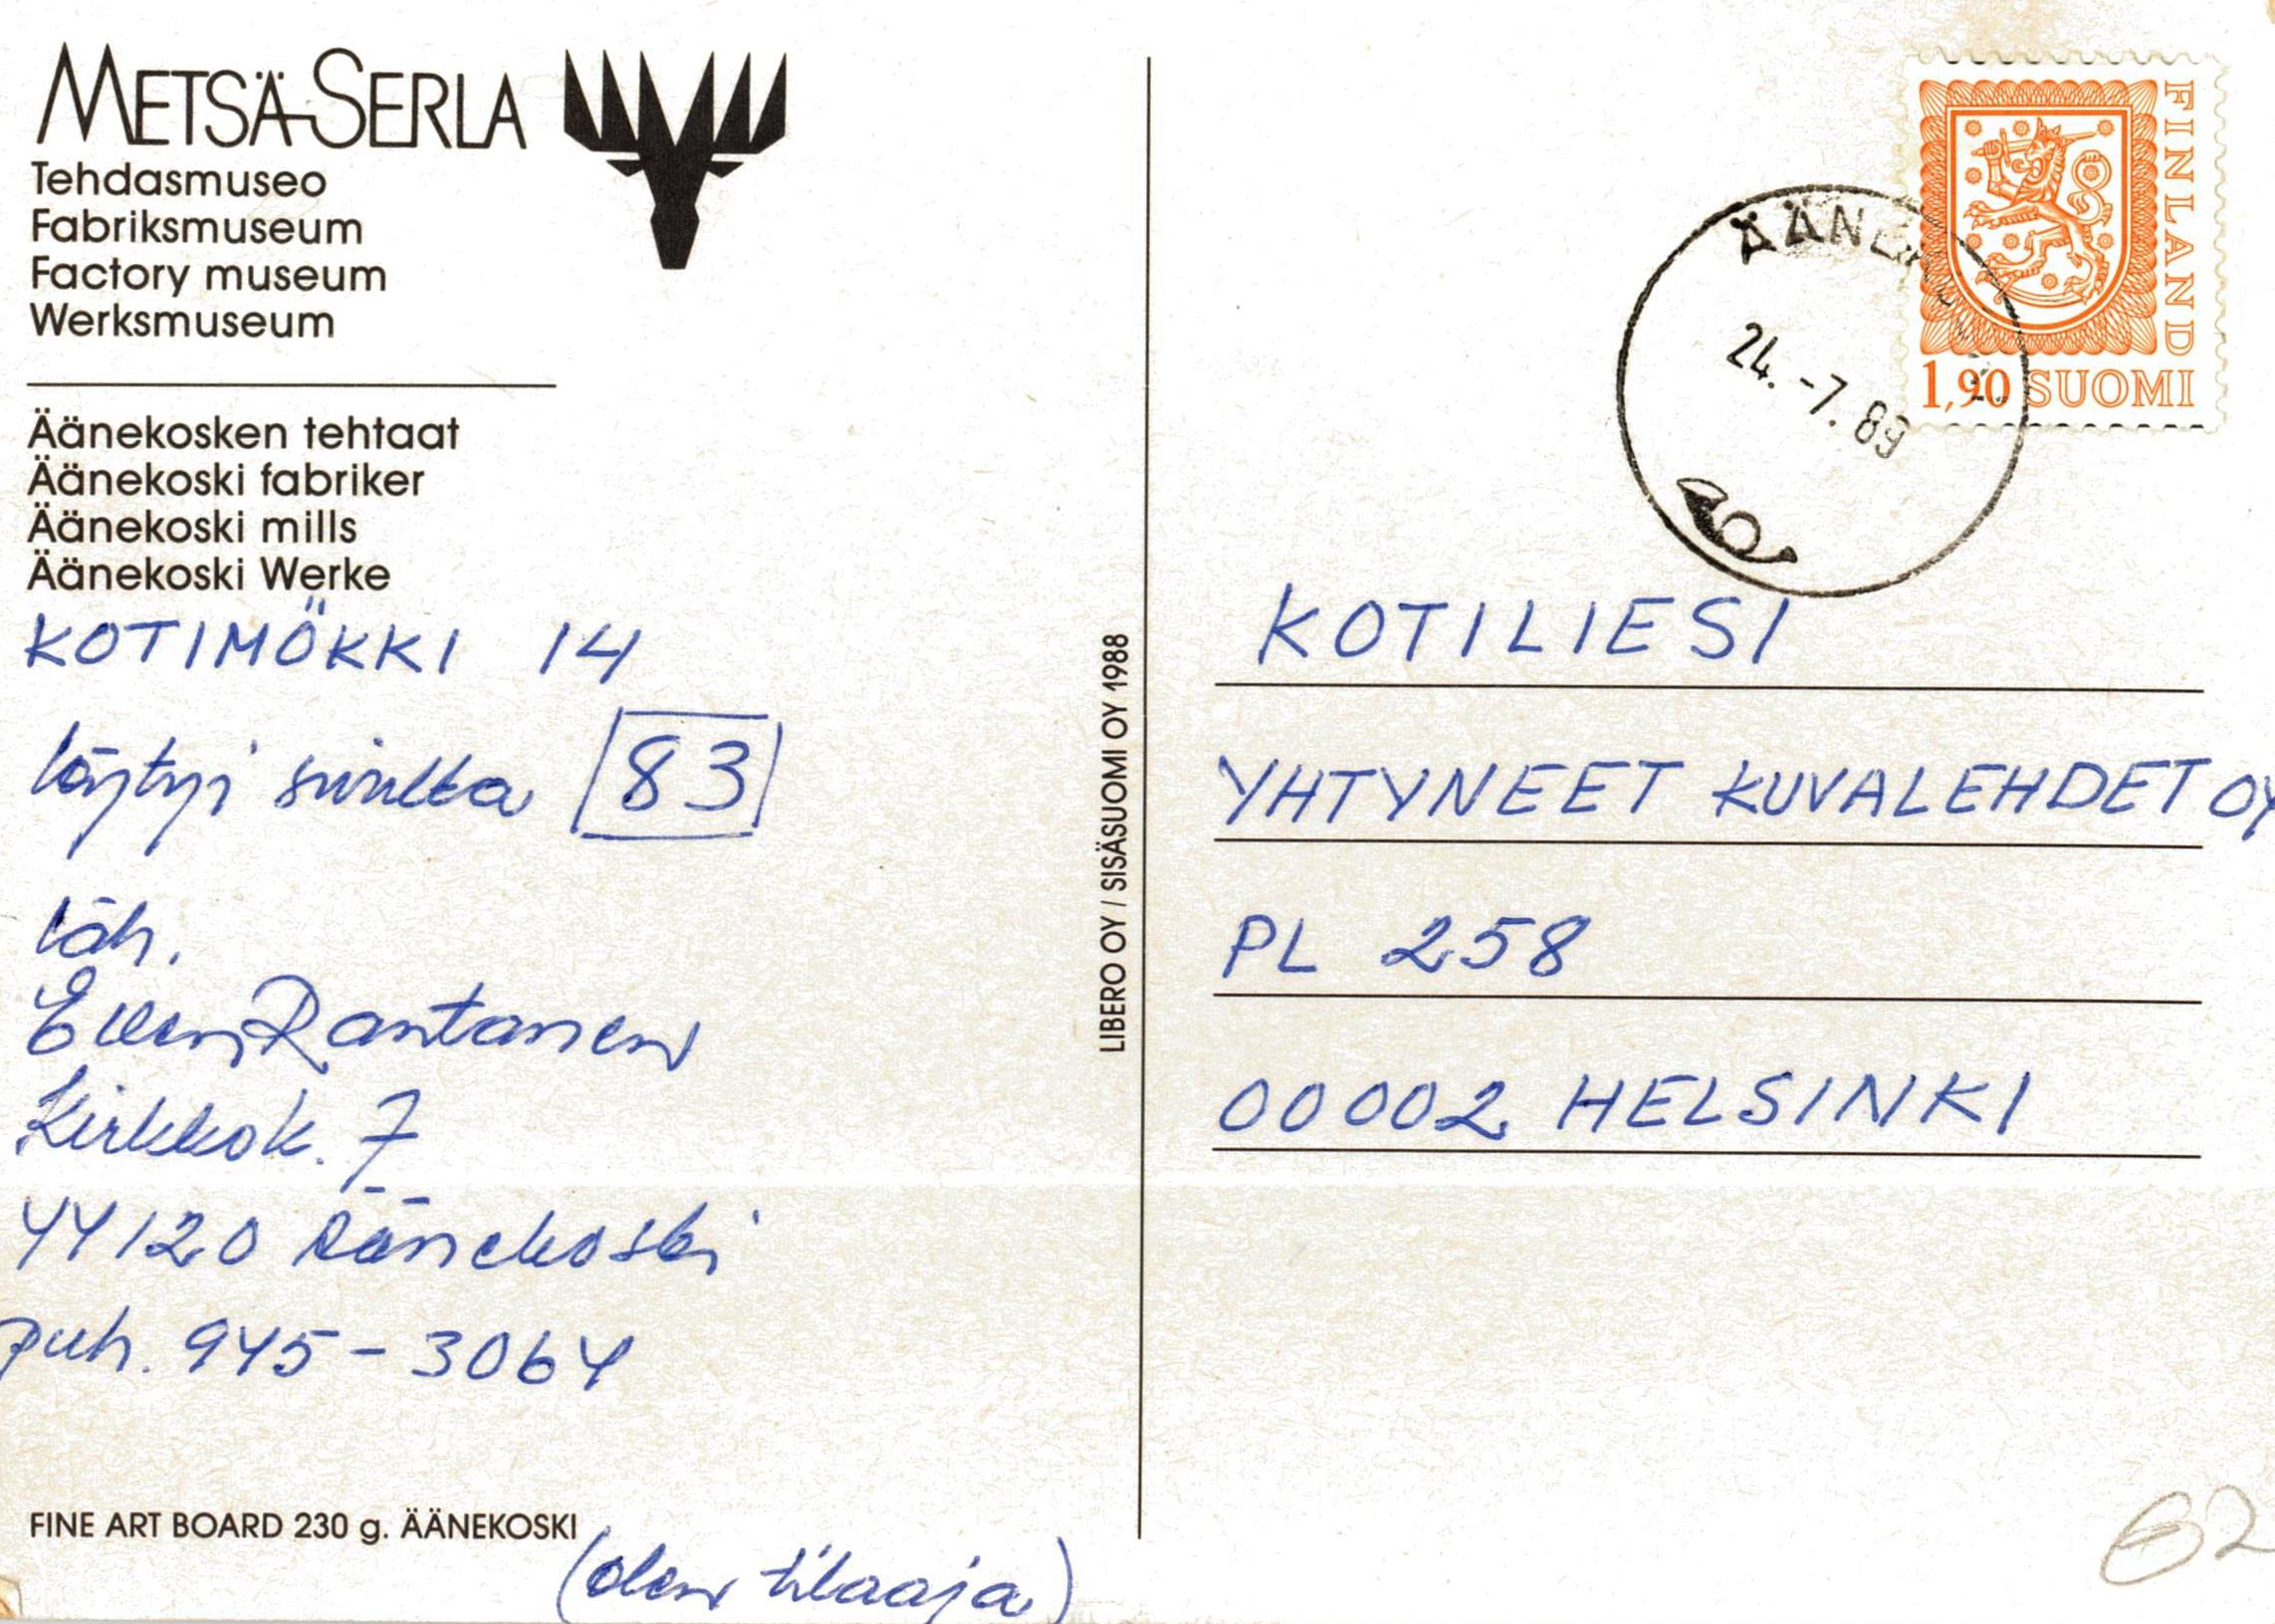 METSÄ-SERLA
Tehdasmuseo
Fabriksmuseum
Factory museum
Werksmuseum
Äänekosken tehtaat
Äänekoski fabriker
Äänekoski mills
Äänekoski Werke
KOTIMÖKKI 14
löytyi sivulta 83
läh.
Ellen Rantanen
Kirkkok. 7
44120 Äänekoski
puh. 945-3064
FINE ART BOARD 230 g. ÄÄNEKOSKI
(olen tilaaja)
LIBERO OY / SISÄSUOMI OY 1988
FINLAND
1,90 SUOMI
24.-7.89
KOTILIESI
YHTYNEET KUVALEHDET OY
PL 258
00002 HELSINKI
62